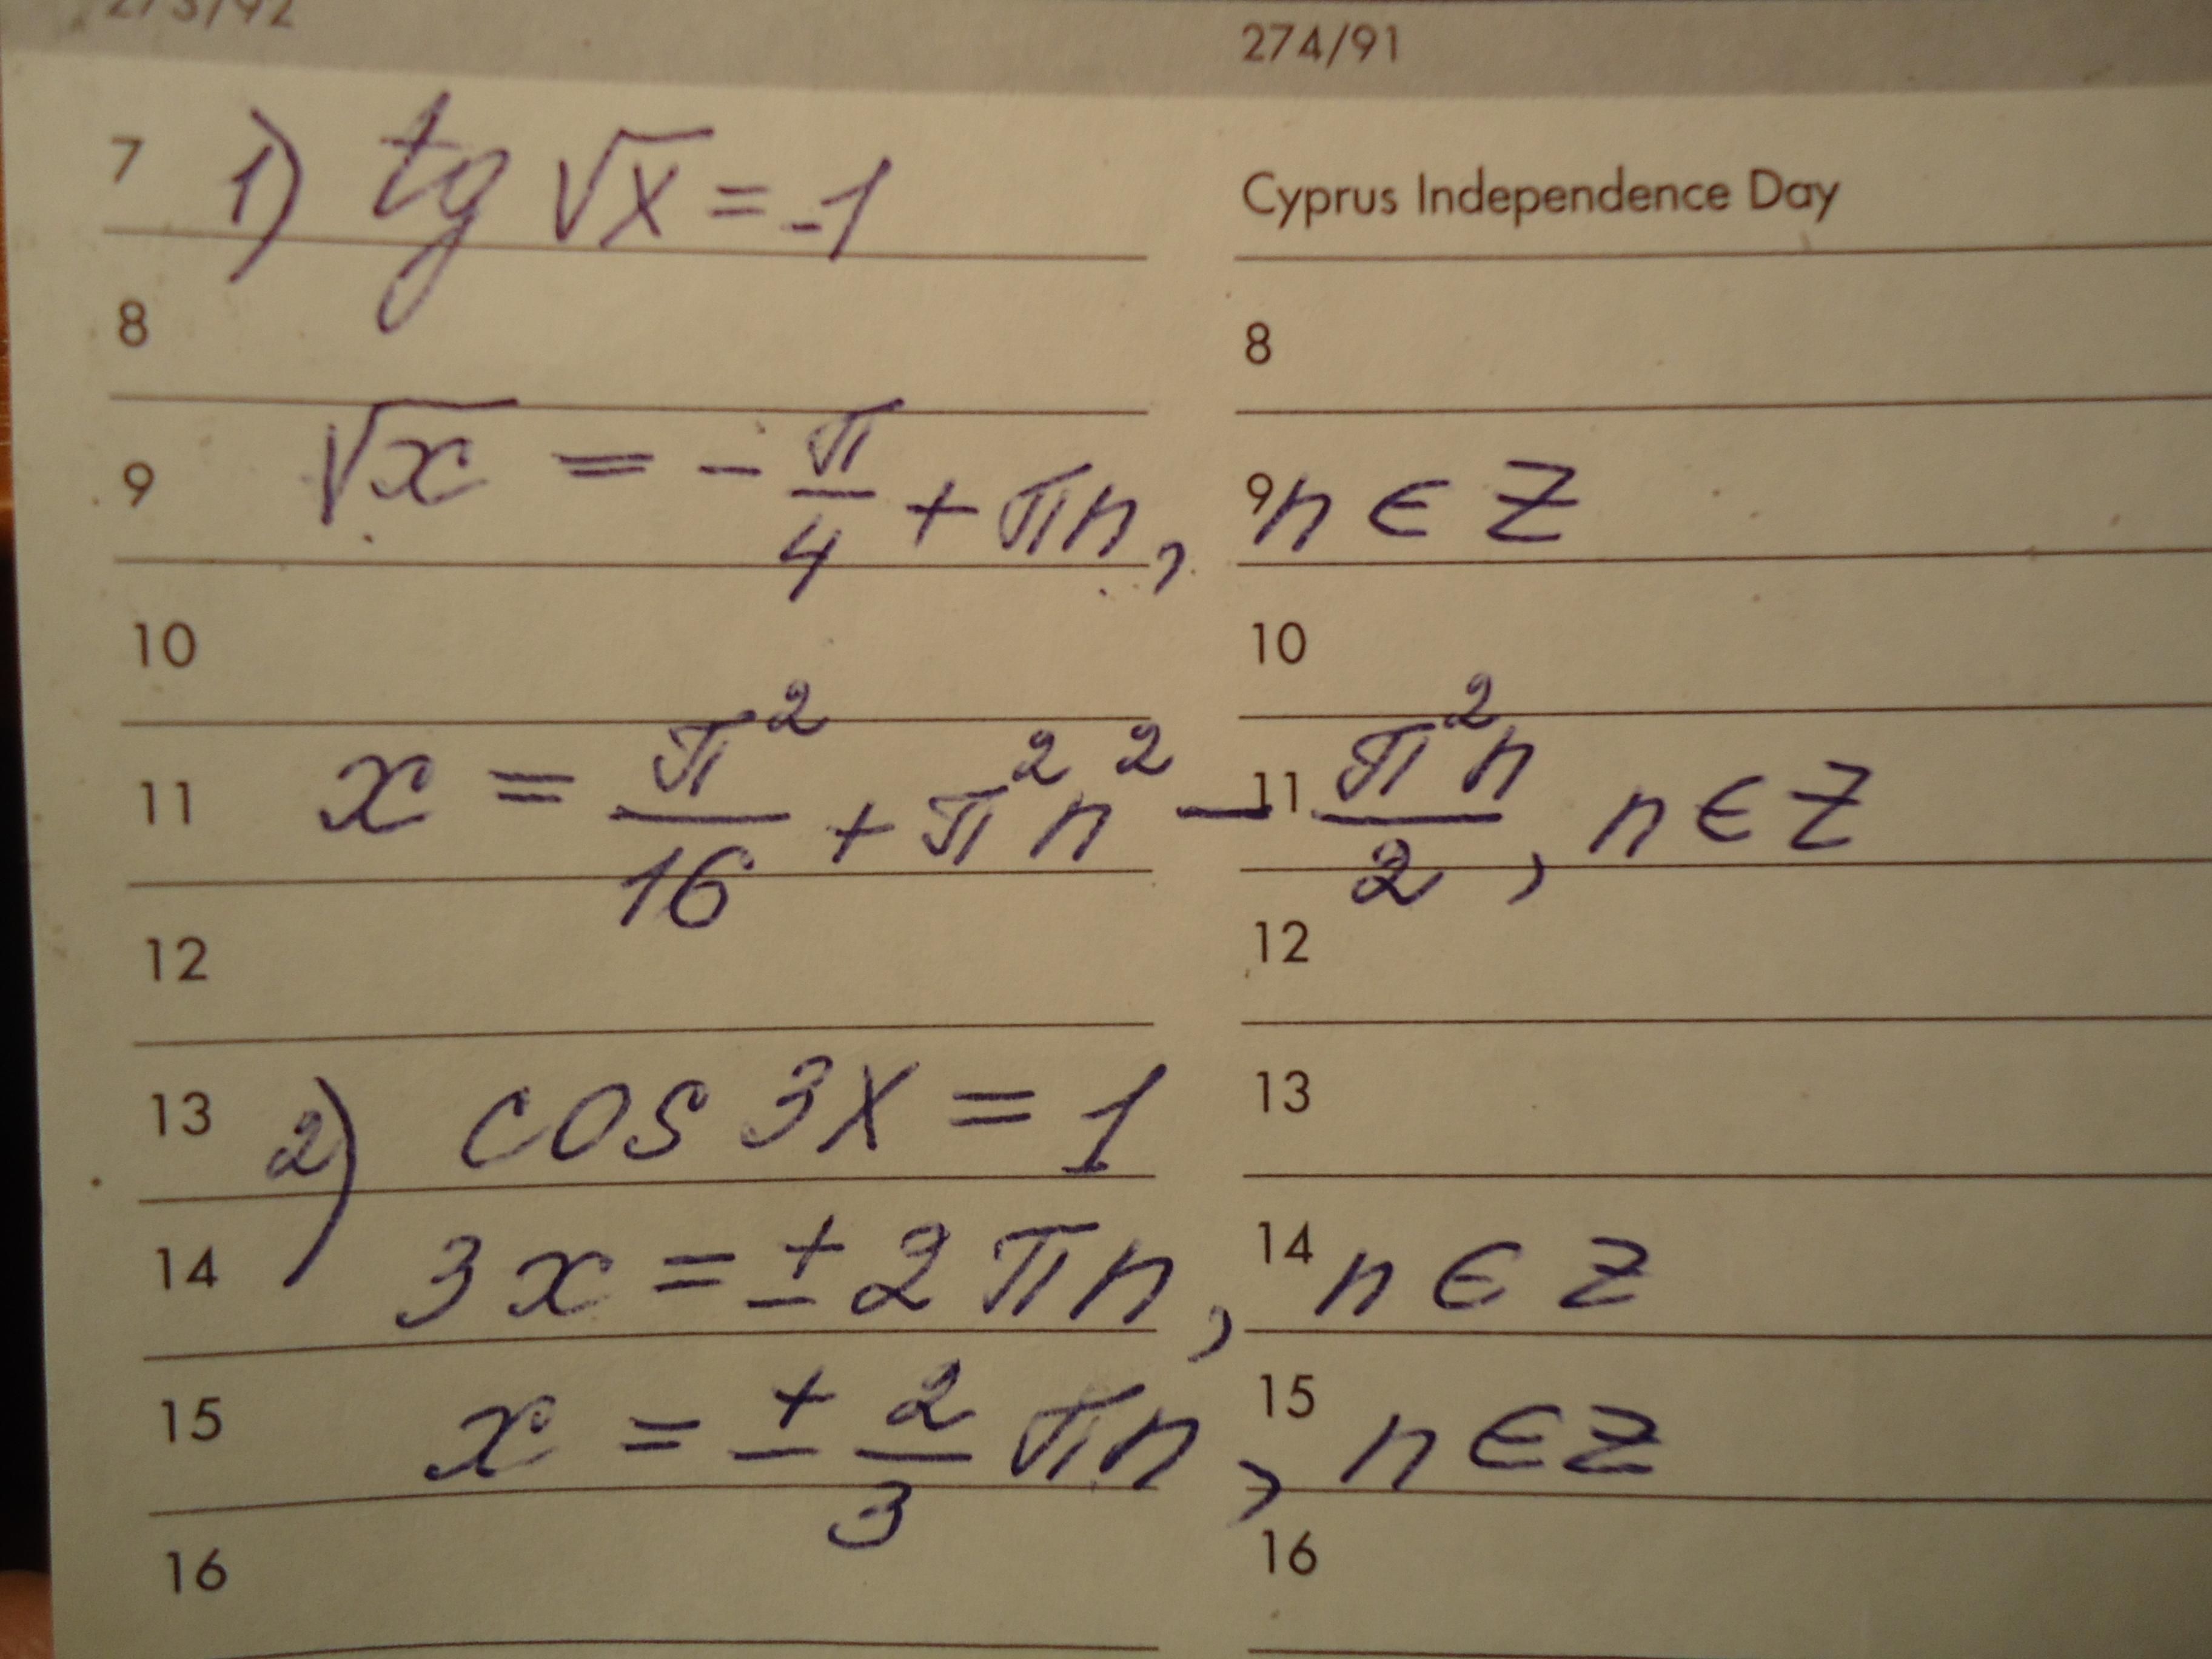 273/92 274/91
7 1) tg √x = -1 Cyprus Independence Day
8 8
9 √x = - π/4 + πn, 9 n ∈ Z
10 10
11 x = π²/16 + π²n² - 11 π²n/2, n ∈ Z
12 12
13 2) cos 3x = 1 13
14 3x = ± 2πn, 14 n ∈ Z
15 x = ± 2/3 πn, 15 n ∈ Z
16 16